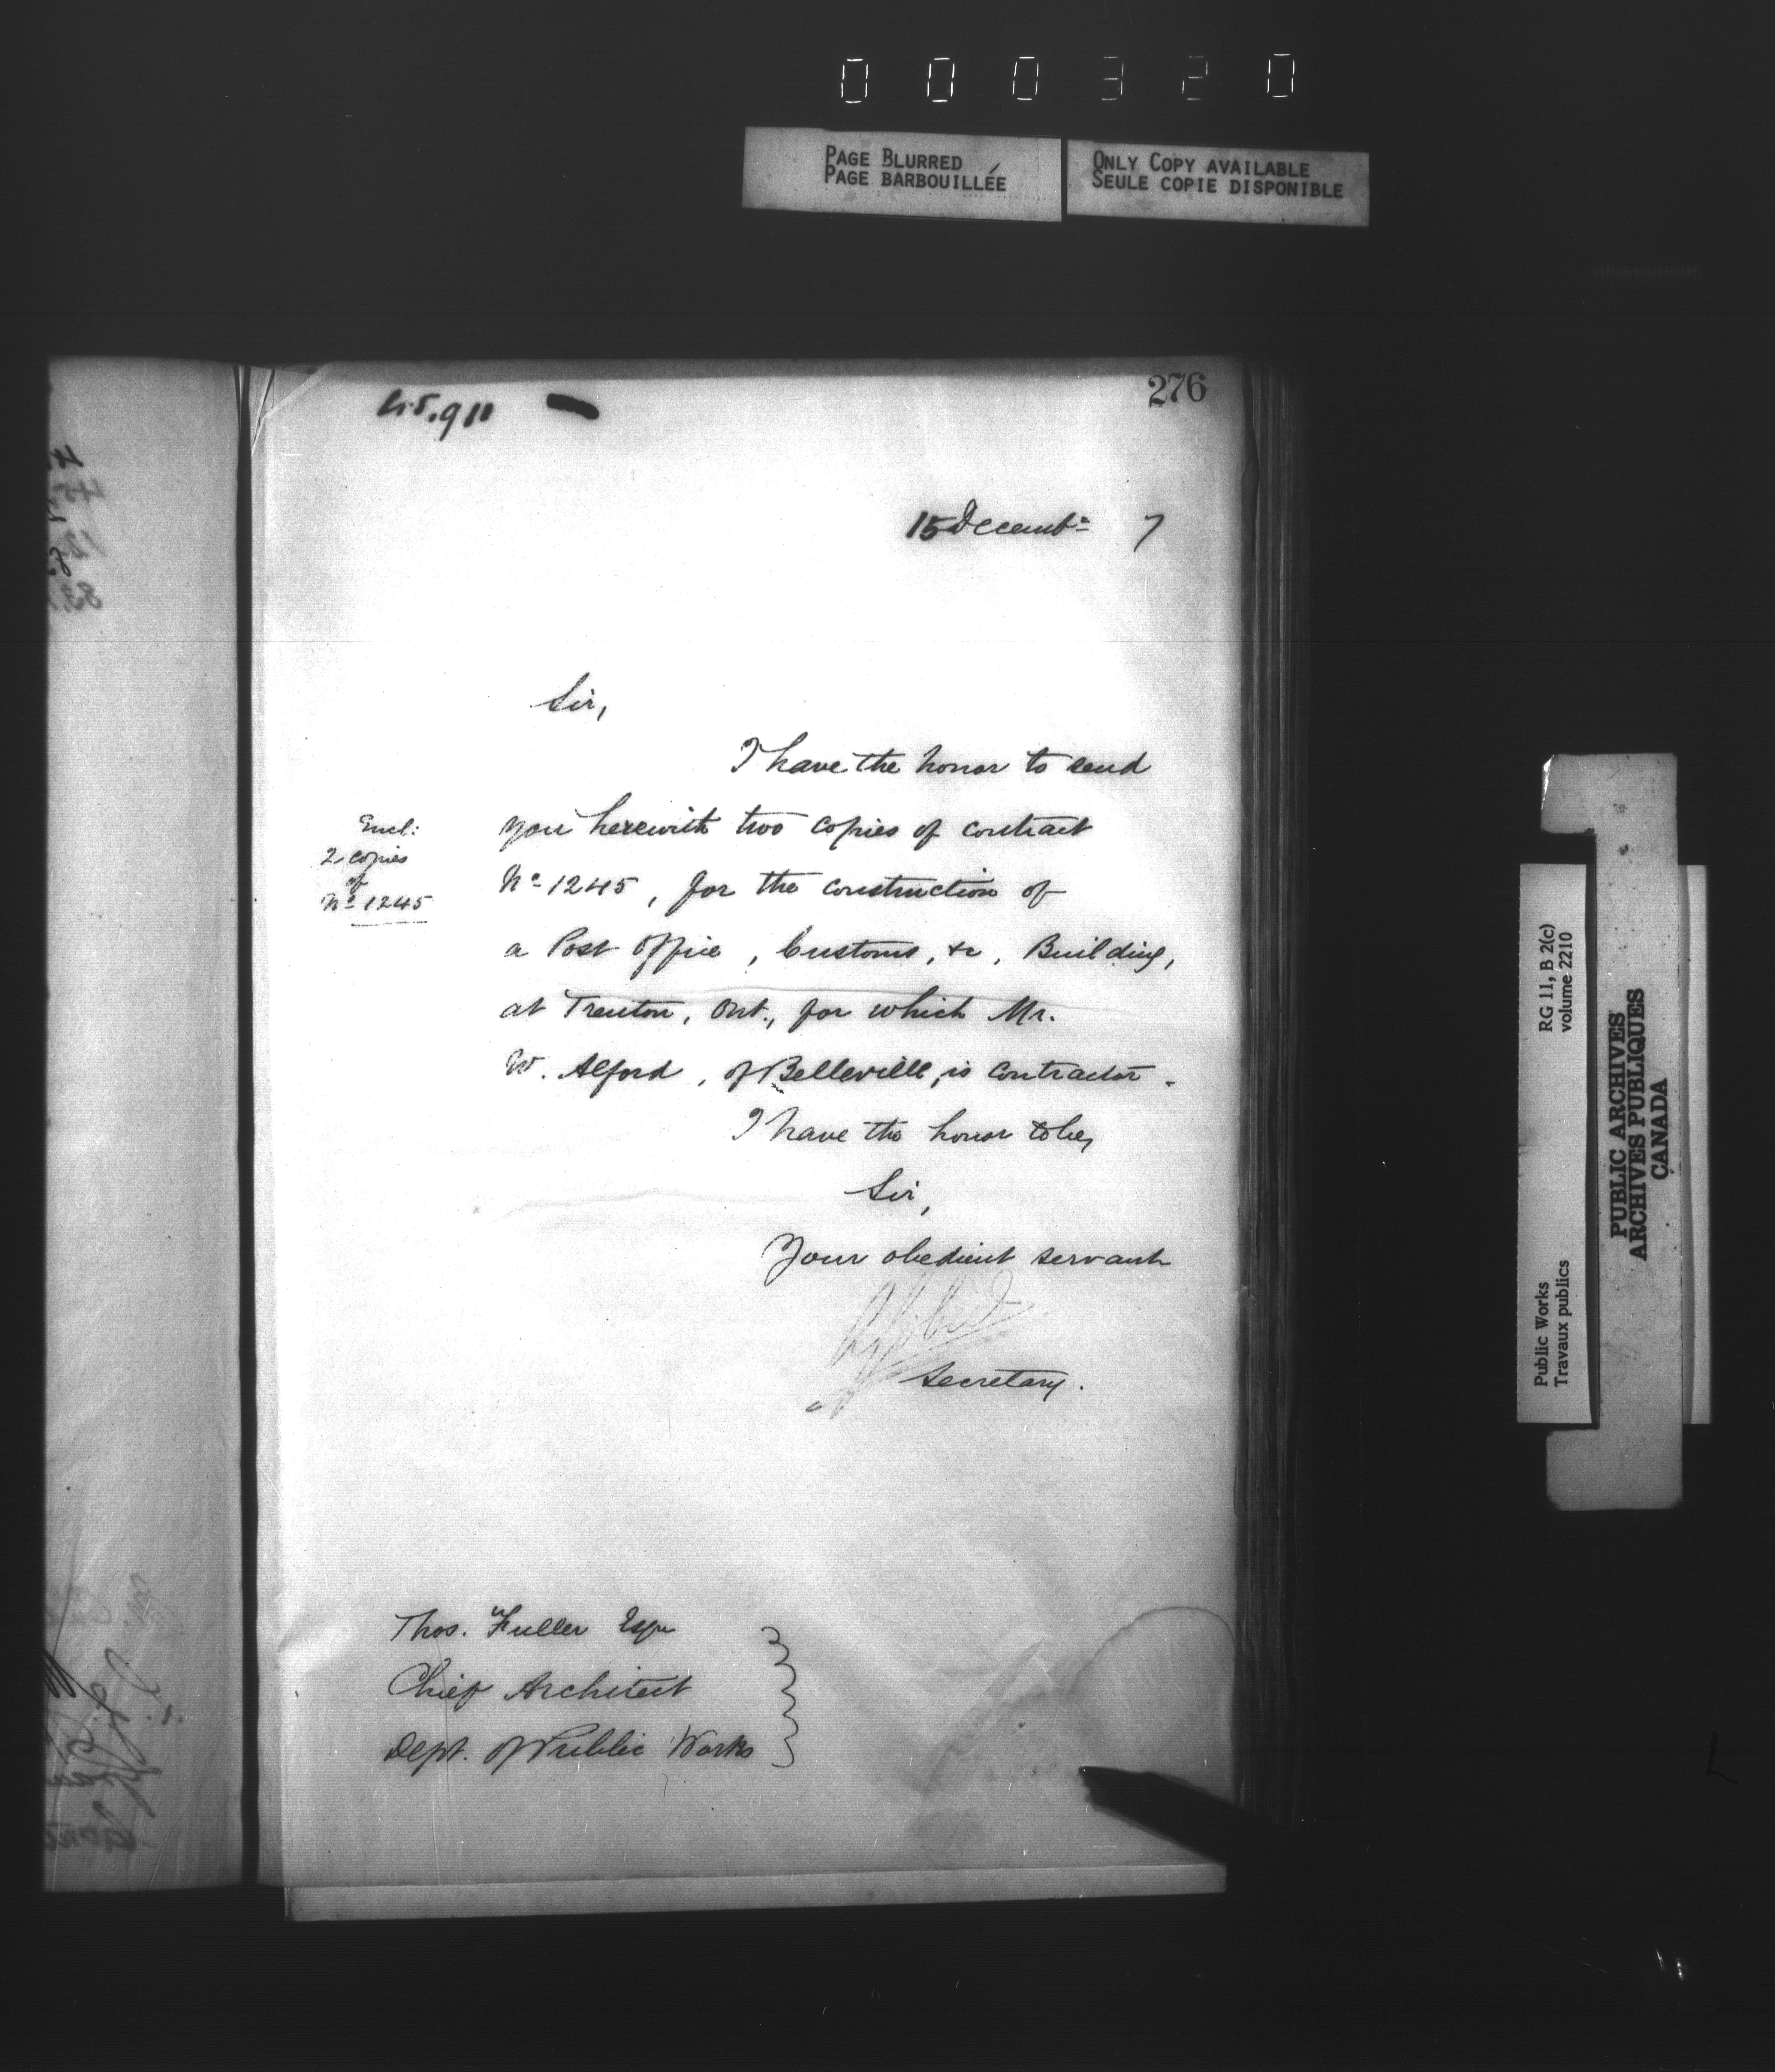 0 0 0 3 2 0
PAGE BLURRED
PAGE BARBOUILLÉE
ONLY COPY AVAILABLE
SEULE COPIE DISPONIBLE
276
45.911
15 Decembr 7
Sir,
I have the honor to send
you herewith two copies of contract
No 1245, for the construction of
a Post Office, Customs, &c, Building,
at Trenton, Ont., for which Mr.
W. Alford, of Belleville, is contractor.
Encl:
2 copies
of
No 1245
I have the honor to be,
Sir,
Your obedient servant
Secretary.
Thos. Fuller Esqr
Chief Architect
Dept. of Public Works
RG 11, B 2(c)
volume 2210
Public Works
Travaux publics
PUBLIC ARCHIVES
ARCHIVES PUBLIQUES
CANADA